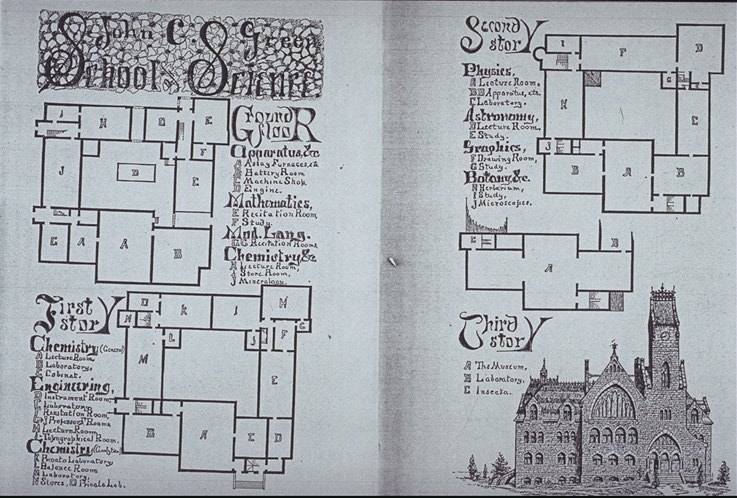 John C. Green
School of Science
Ground
floor
Apparatus, &c
A Assay Furnaces, &c
B Battery Room
C Machine Shop
D Engine.
Mathematics,
E Recitation Room
F Study.
Mod. Lang.
G Recitation Rooms
Chemistry &c
H Lecture Room,
I Store Room,
J Mineralogy.
First
story
Chemistry (General)
A Lecture Room
B Laboratory,
C Cabinet.
Engineering,
D Instrument Room
Laboratory
Recitation Room
Professors Rooms
Lecture Room
Topographical Room.
Chemistry
K Photo Laboratory
L Balance Room
M Laboratory,
N Stores, O Private Lab.
Second
story
Physics,
A Lecture Room,
B Apparatus, etc.
C Laboratory.
Astronomy,
D Lecture Room,
E Study.
Graphics,
F Drawing Room,
G Study.
Botany &c.
H Herbarium,
I Study,
J Microscopes.
Third
story
A The Museum,
B Laboratory,
C Insecta.